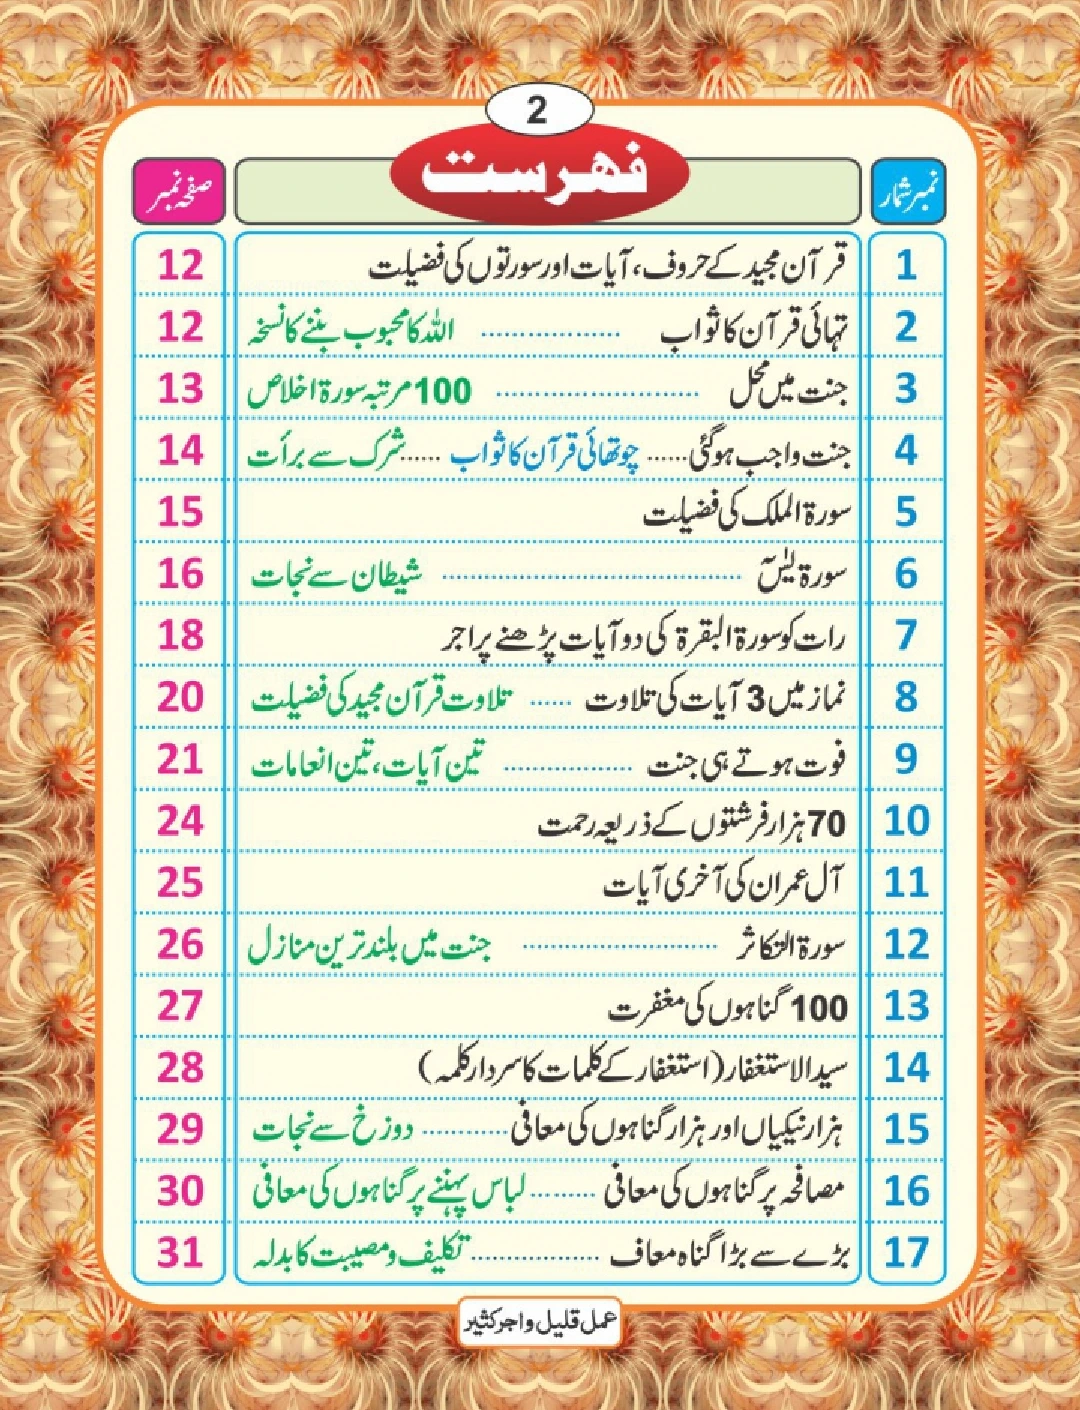 2
فہرست
نمبر شمار صفحہ نمبر
1 قرآن مجید کے حروف، آیات اور سورتوں کی فضیلت 12
2 تہائی قرآن کا ثواب .................. اللہ کا محبوب بننے کا نسخہ 12
3 جنت میں محل .......................... 100 مرتبہ سورۃ اخلاص 13
4 جنت واجب ہوگئی...... چوتھائی قرآن کا ثواب ......شرک سے برأت 14
5 سورۃ الملک کی فضیلت 15
6 سورۃ یٰسٓ ...................................... شیطان سے نجات 16
7 رات کو سورۃ البقرۃ کی دو آیات پڑھنے پر اجر 18
8 نماز میں 3 آیات کی تلاوت ...... تلاوت قرآن مجید کی فضیلت 20
9 فوت ہوتے ہی جنت ................. تین آیات، تین انعامات 21
10 70 ہزار فرشتوں کے ذریعہ رحمت 24
11 آل عمران کی آخری آیات 25
12 سورۃ التکاثر ......................... جنت میں بلند ترین منازل 26
13 100 گناہوں کی مغفرت 27
14 سید الاستغفار (استغفار کے کلمات کا سردار کلمہ) 28
15 ہزار نیکیاں اور ہزار گناہوں کی معافی ........... دوزخ سے نجات 29
16 مصافحہ پر گناہوں کی معافی ......... لباس پہننے پر گناہوں کی معافی 30
17 بڑے سے بڑا گناہ معاف ................. تکلیف و مصیبت کا بدلہ 31
عمل قلیل و اجر کثیر